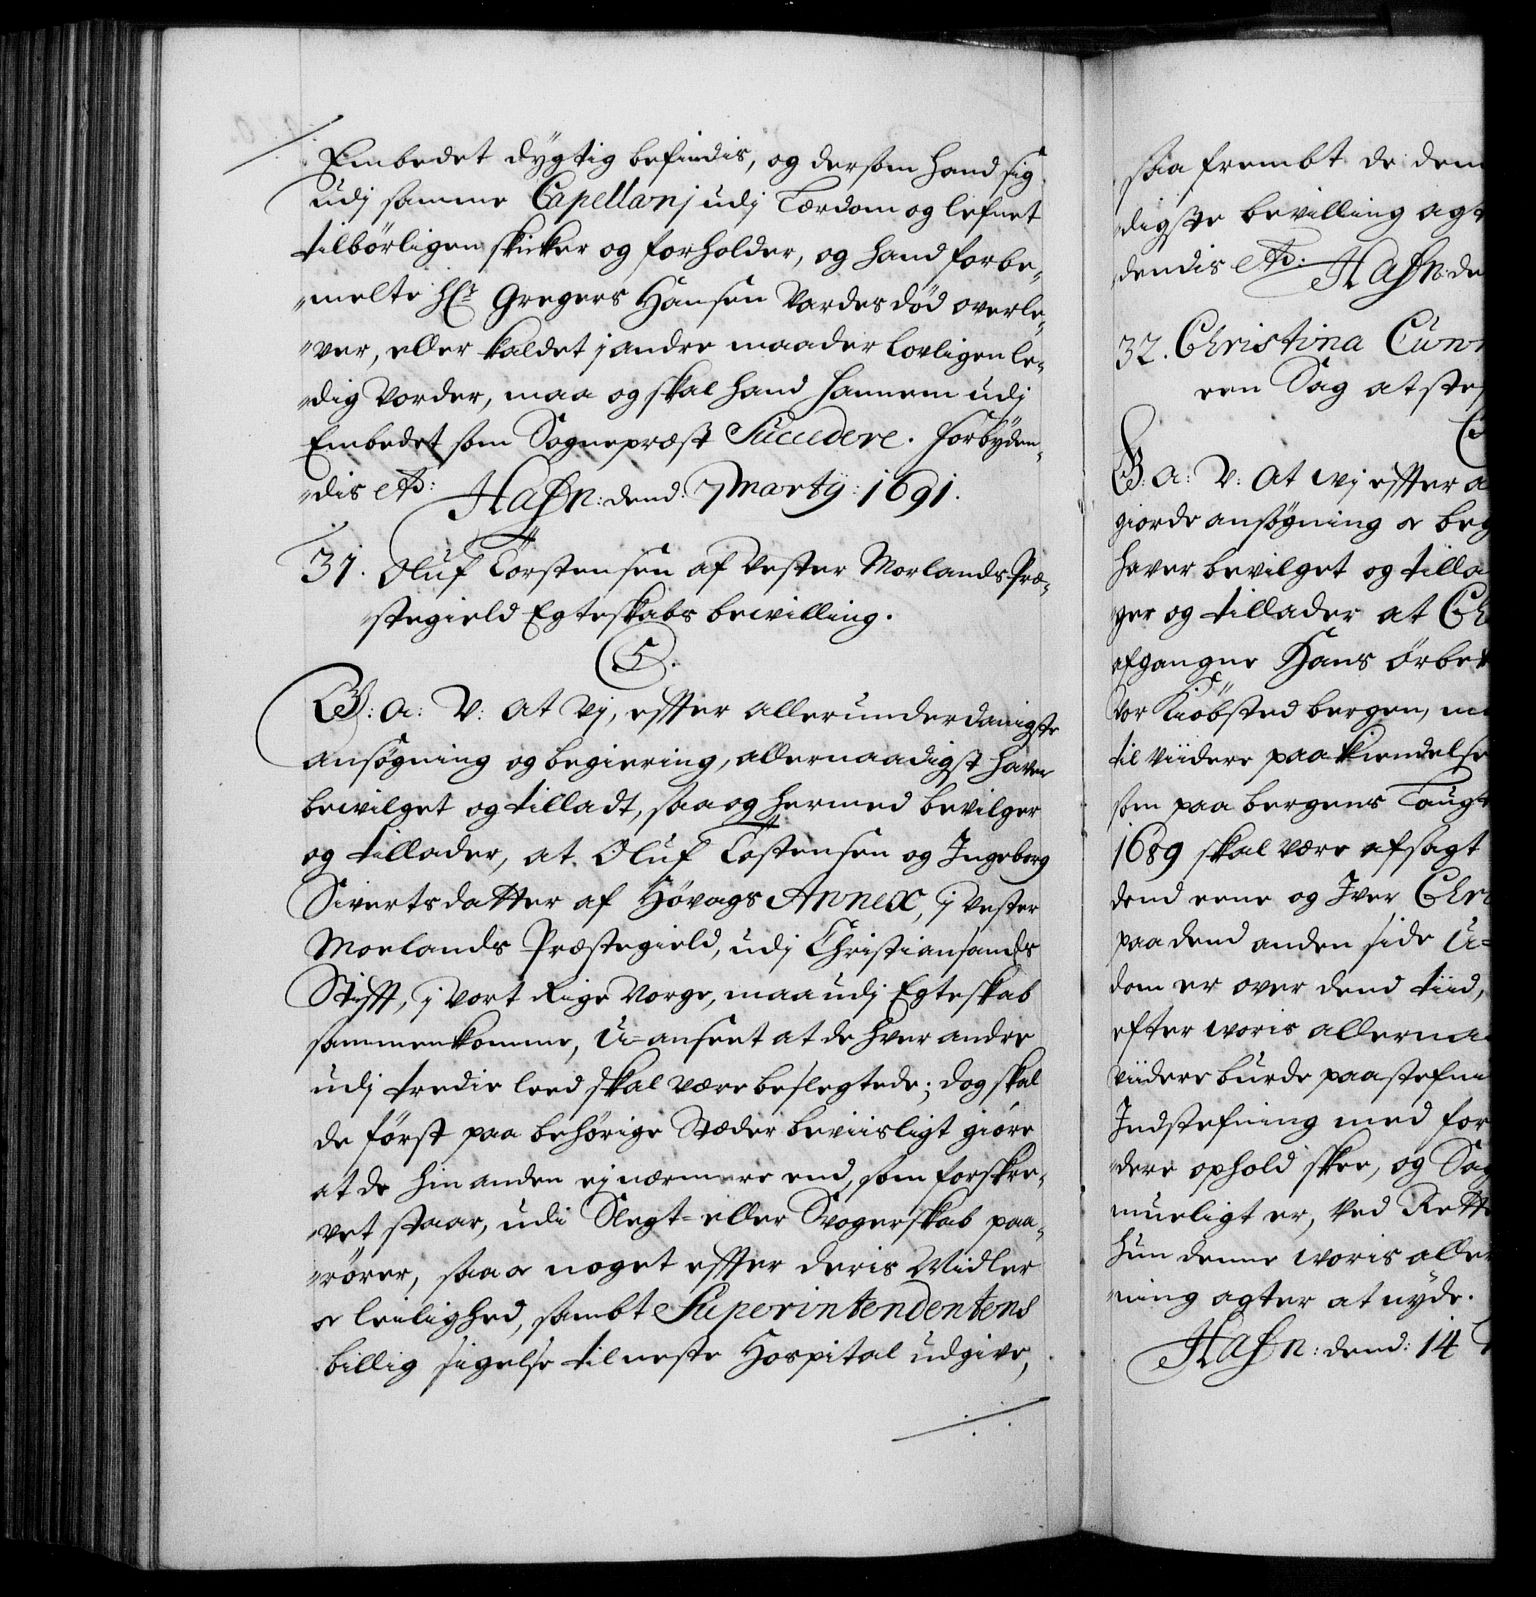 Embedet dygtig befindis, og dersom hand sig
udj samme Capellanj udj Lerdom og lefnet
tilbörligen skicker og forholder, og hand forbe„
„melte Hr. Gregers Hansen Vardes död overle„
„ver, eller kaldet j andre maader lovligen le„
„dig vorder, maa og skal hand hannem udj
Embedet som Sognepræst Succedere. Forbyden„
„dis etc: Hafn: dend: 7 Marty: 1691.
31. Oluf Torstensen af Vester Morlands Præ„
„stegield Egteskabs bewilling.
C5.
G: a: V: at vj, effter allerunderdanigste
ansøgning og begiering, allernaadigst haver
bewilget og tilladt, saa og hermed bevilger
og tillader, at Oluf Tostensen og Ingeborg
Sivertsdatter af Hövags Annex, j Vester
Morlands Præstegield, udj Christiansands
Stifft, j vort Rige Norge, maa udj Egteskab
sammenkomme, U-anseet at de hver andre
udj tredie leed skal være beslegtede; dog skal
de först paa behörige Stæder beviisligt giöre
at de hin anden ej nærmere end, som forskre„
„vet staar, udi Slegt- eller Svogerskab paa„
„rörer, saa og noget effter deris Midler
og leilighed, sambt Superintendentens
billig sigelse til neste Hospital udgive,
saa frembt de dem
digste bevilling agt
dendis etc: Hafn: de
32. Christina Cun
een Sag at ste
C5
G: a: V: at wj effter a
giorde ansögning og beg
haver bevilget og tilla
„ger og tillader at Ch
afgangne Hans örbe
vor Kiöbsted bergen, m
til viidere paakiendelse
som paa bergens Laugt
1689 skal være afsagt
dend eene og Iver Chri
paa dend anden side U-
dom er over dend tiid,
efter woris allerna
viidere burde paastefn
Indstefning med for
„dere ophold skee, og Sag
mueligt er, ved Rett
hun denne woris aller
„ning agter at nyde.
Hafn: dend: 14